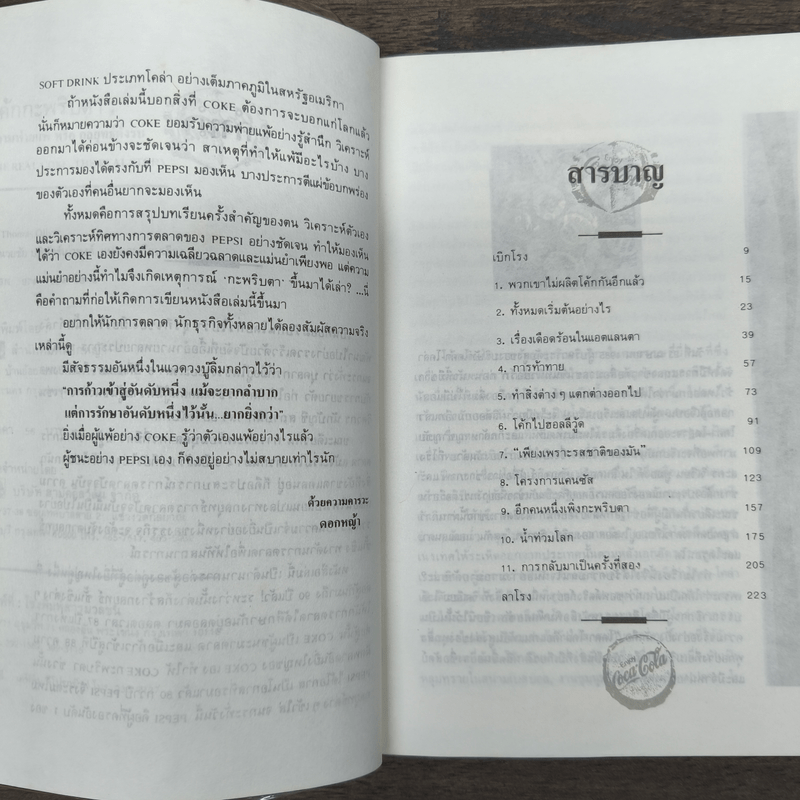 SOFT DRINK ประเภทโคล่า อย่างเต็มภาคภูมิในสหรัฐอเมริกา
ถ้าหนังสือเล่มนี้บอกสิ่งที่ COKE ต้องการจะบอกแก่โลกแล้ว
นั่นก็หมายความว่า COKE ยอมรับความพ่ายแพ้อย่างรู้สำนึก วิเคราะห์
ออกมาได้ค่อนข้างจะชัดเจนว่า สาเหตุที่ทำให้แพ้มีอะไรบ้าง บาง
ประการมองได้ตรงกับที่ PEPSI มองเห็น บางประการตีแผ่ข้อบกพร่อง
ของตัวเองที่คนอื่นยากจะมองเห็น
ทั้งหมดคือการสรุปบทเรียนครั้งสำคัญของตน วิเคราะห์ตัวเอง
และวิเคราะห์ทิศทางการตลาดของ PEPSI อย่างชัดเจน ทำให้มองเห็น
ได้ว่า COKE เองยังคงมีความเฉลียวฉลาดและแม่นยำเพียงพอ แต่ความ
แม่นยำอย่างนี้ทำไมจึงเกิดเหตุการณ์ 'กะพริบตา' ขึ้นมาได้เล่า? ...นี่
คือคำถามที่ก่อให้เกิดการเขียนหนังสือเล่มนี้ขึ้นมา
อยากให้นักการตลาด นักธุรกิจทั้งหลายได้ลองสัมผัสความจริง
เหล่านี้ดู
มีสัจธรรมอันหนึ่งในแวดวงบู๊ลิ้มกล่าวไว้ว่า
"การก้าวเข้าสู่อันดับหนึ่ง แม้จะยากลำบาก
แต่การรักษาอันดับหนึ่งไว้นั้น...ยากยิ่งกว่า"
ยิ่งเมื่อผู้แพ้อย่าง COKE รู้ว่าตัวเองแพ้อย่างไรแล้ว
ผู้ชนะอย่าง PEPSI เอง ก็คงอยู่อย่างไม่สบายเท่าไรนัก
ด้วยความคารวะ
ดอกหญ้า
สารบาญ
เบิกโรง 9
1. พวกเขาไม่ผลิตโค้กกันอีกแล้ว 15
2. ทั้งหมดเริ่มต้นอย่างไร 23
3. เรื่องเดือดร้อนในแอตแลนตา 39
4. การท้าทาย 57
5. ทำสิ่งต่าง ๆ แตกต่างออกไป 73
6. โค้กไปฮอลลีวู้ด 91
7. "เพียงเพราะรสชาติของมัน" 109
8. โครงการแคนซัส 123
9. อีกคนหนึ่งเพิ่งกะพริบตา 157
10. น้ำท่วมโลก 175
11. การกลับมาเป็นครั้งที่สอง 205
ลาโรง 223
Coca-Cola